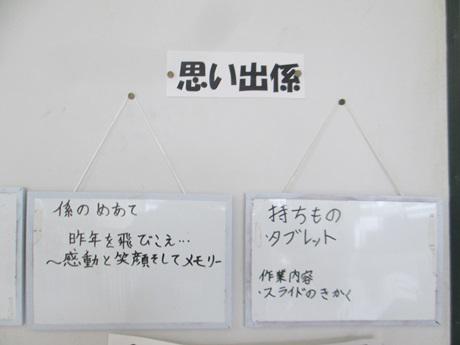 思い出係
係のめあて
昨年を飛びこえ…
～感動と笑顔そしてメモリー
持ちもの
タブレット
作業内容
・スライドのきかく